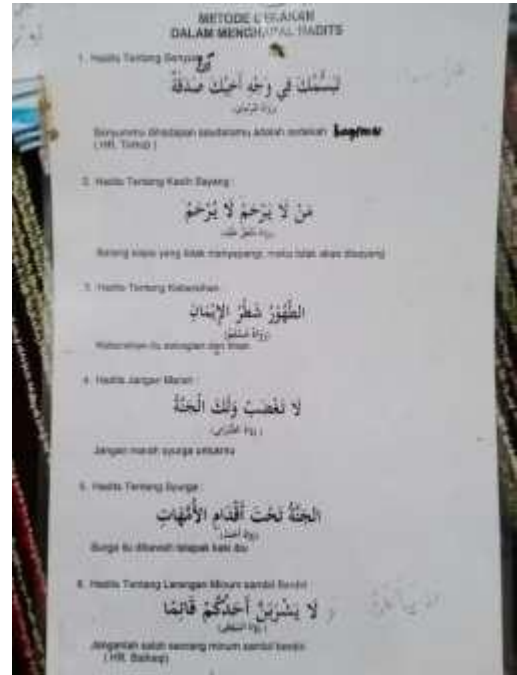 METODE GERAKAN
DALAM MENGHAPAL HADITS
1. Hadits Tentang Senyum
تَبَسُّمُكَ فِي وَجْهِ أَخِيْكَ صَدَقَةٌ
Senyummu dihadapan saudaramu adalah sedekah bagimu
2. Hadits Tentang Kasih Sayang :
مَنْ لَا يَرْحَمْ لَا يُرْحَمْ
Barang siapa yang tidak menyayangi, maka tidak akan disayang
3. Hadits Tentang Kebersihan
الطُّهُوْرُ شَطْرُ الْإِيْمَانِ
(رواه مسلم)
Kebersihan itu sebagian dari Iman
4. Hadits Jangan Marah :
لَا تَغْضَبْ وَلَكَ الْجَنَّةُ
Jangan marah syurga untukmu
5. Hadits Tentang Syurga :
الْجَنَّةُ تَحْتَ أَقْدَامِ الْأُمَّهَاتِ
Surga itu dibawah telapak kaki ibu
6. Hadits Tentang Larangan Minum sambil Berdiri
لَا يَشْرَبَنَّ أَحَدُكُمْ قَائِمًا
Janganlah salah seorang minum sambil berdiri
( HR. Baihaqi)